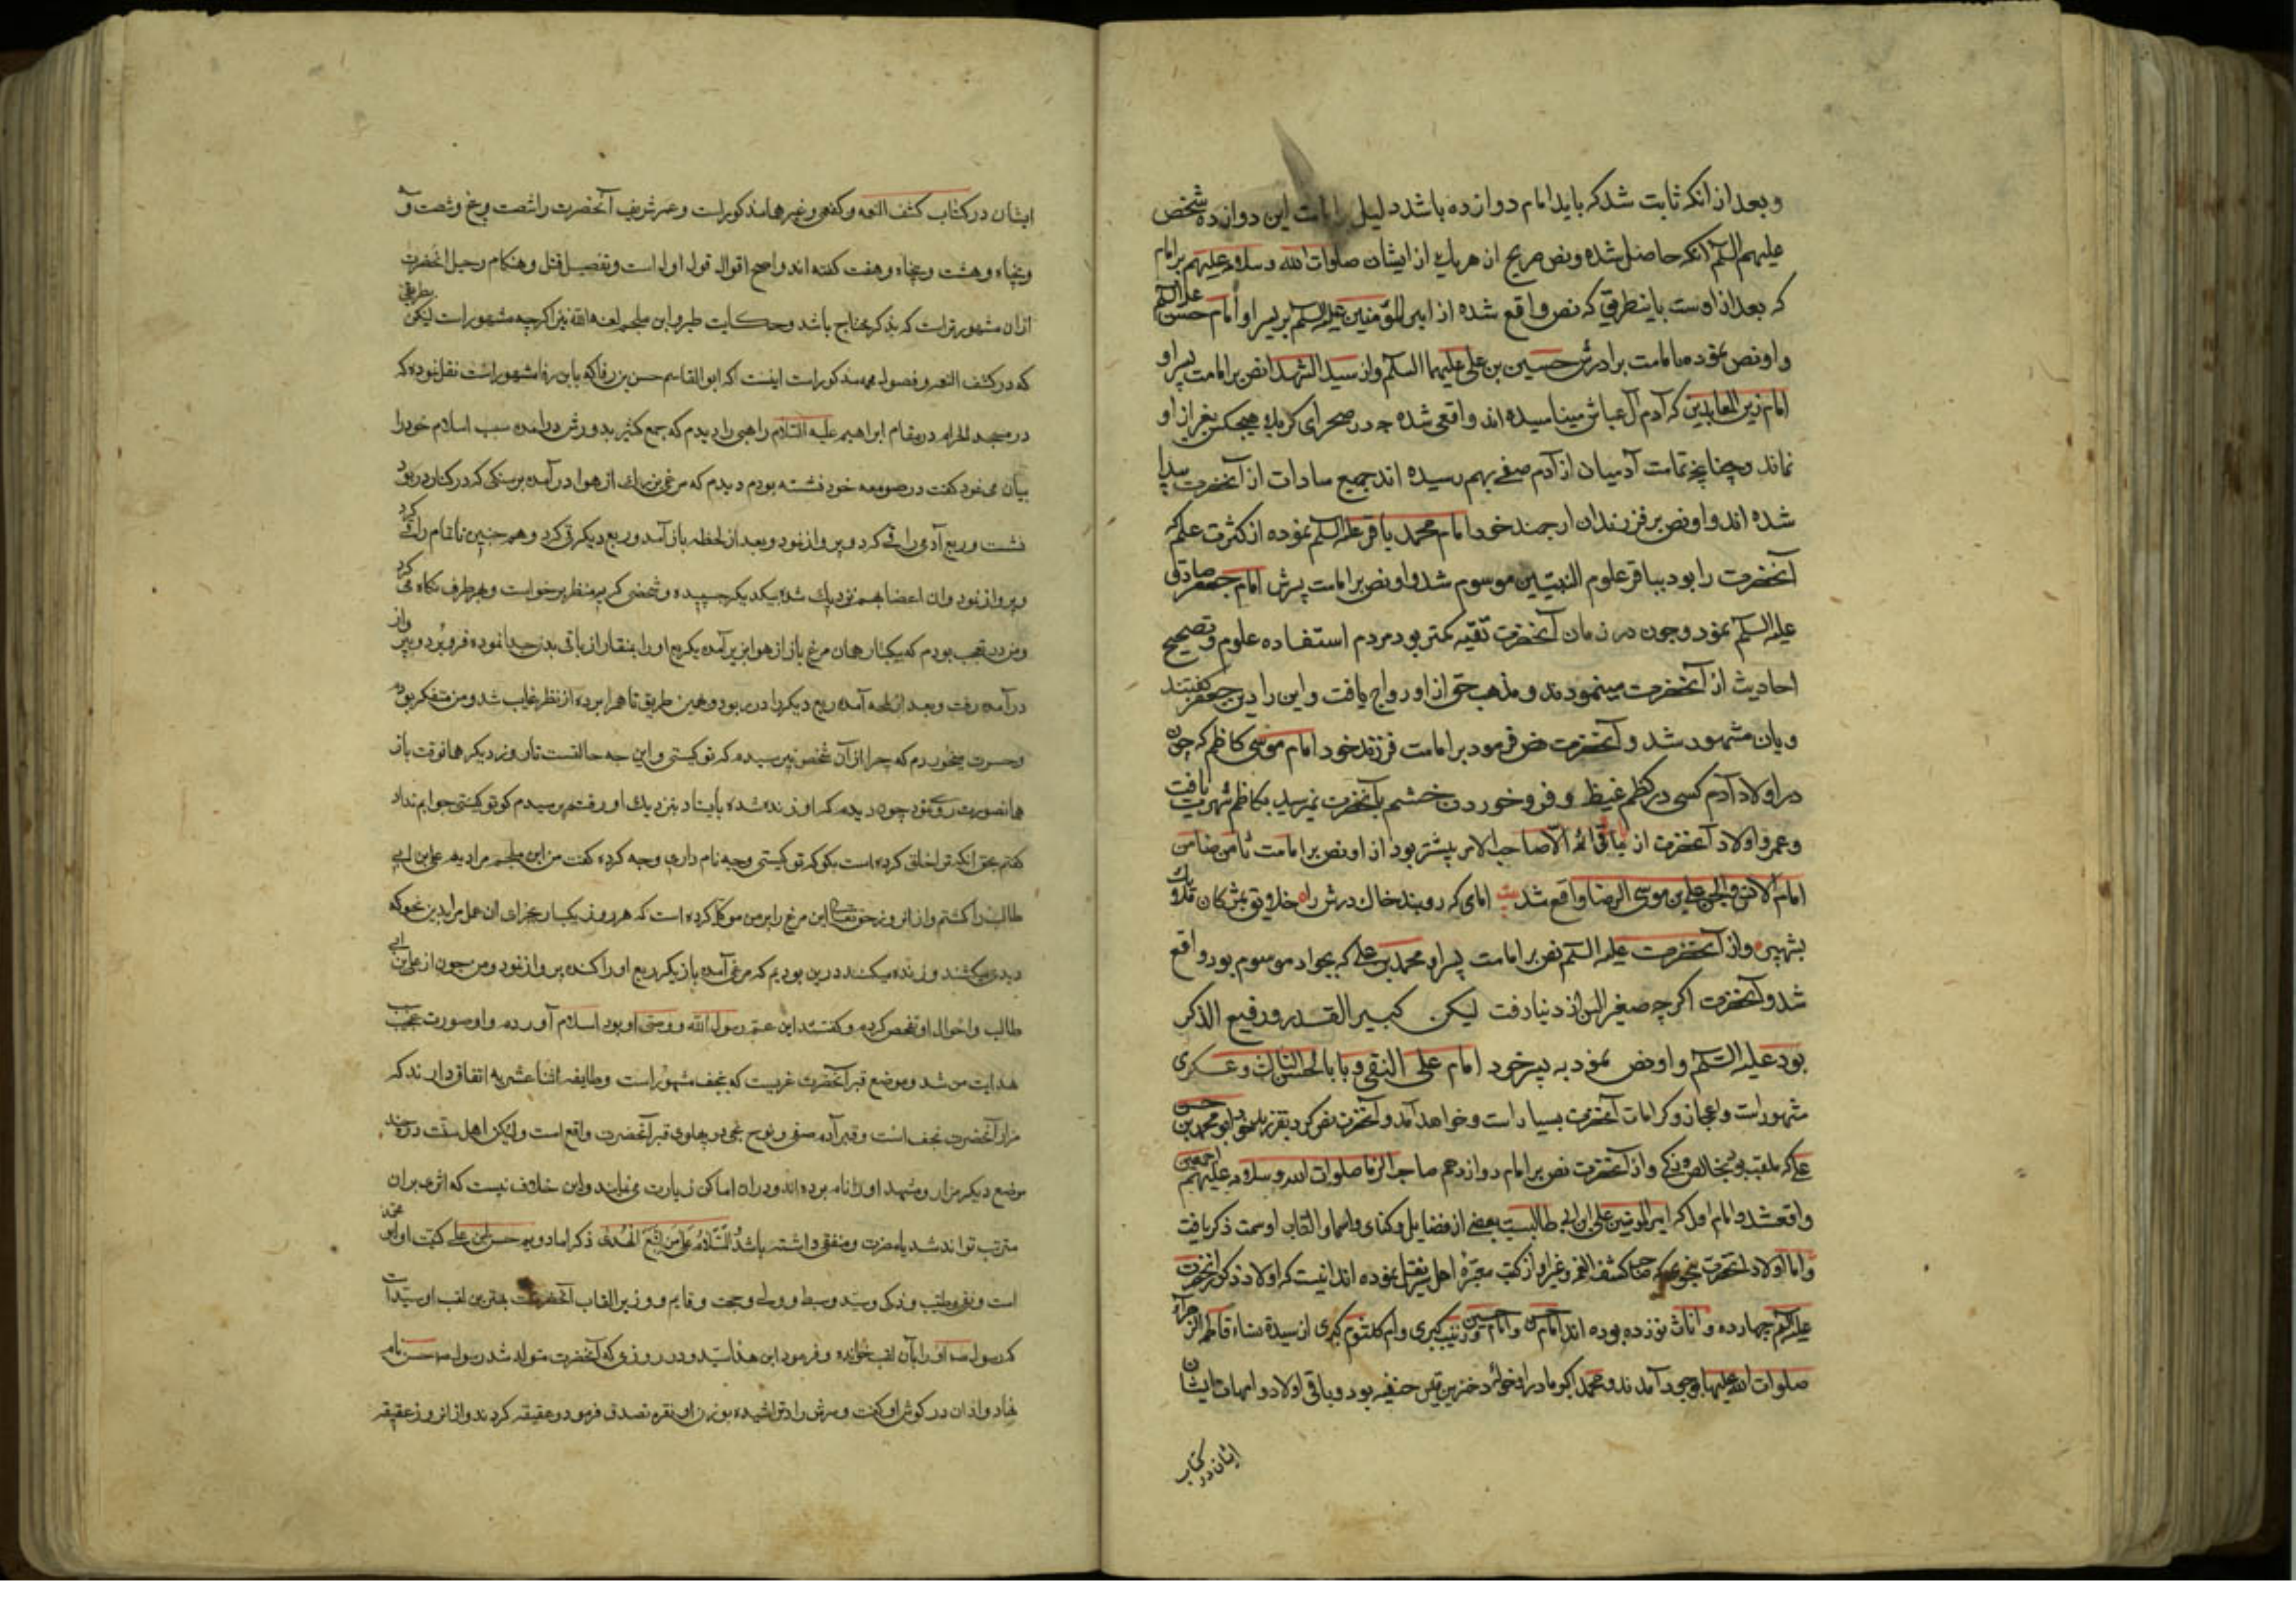 و بعد از انکه ثابت شد که باید امام دوازده باشد دلیل امامت این دوازده شخص
علیهم السلم انکه حاصل شده و نص صریح از هر یک از ایشان صلوات الله و سلامه علیهم بر امام
که بعد از اوست باینطریق که نص واقع شده از امیر المؤمنین علیه السلم بر پسر او امام حسن علیه السلم
و او نص نموده بامامت برادرش حسین بن علی علیهما السلم و از سید الشهدا نص بر امامت پسر او
امام زین العابدین که آدم آل عباش مینامیده اند واقع شده چه در صحرای کربلا هیچکس بغیر از او
نماند و چنانچه تمامت آدمیان از آدم صفی بهم رسیده اند جمیع سادات از آنحضرت پیدا
شده اند و او نص بر فرزندان ارجمند خود امام محمد باقر علیه السلم نموده از کثرت علم که
آنحضرت را بود بباقر علوم النبیین موسوم شد و او نص بر امامت پسرش امام جعفر صادق
علیه السلم نمود و چون در زمان آنحضرت تقیه کمتر بود مردم استفاده علوم و تصحیح
احادیث از آنحضرت مینمودند و مذهب حق از او رواج یافت و این را دین جعفر گفتند
و بان مشهور شد و آنحضرت نص فرمود بر امامت فرزند خود امام موسی کاظم که چون
در اولاد آدم کسی در کظم غیظ و فرو خوردن خشم بآنحضرت نمیرسید بکاظم شهرت یافت
و عمر و اولاد آنحضرت از باقی ائمه الا صاحب الامر بیشتر بود از او نص بر امامت ثامن ضامن
امام الانس و الجن علی بن موسی الرضا واقع شد بیت امامی که روبند خاک درش را خلایق بمژگان ملایک
بشهپر و از آنحضرت علیه السلم نص بر امامت پسر او محمد بن علی که بجواد موسوم بود واقع
شد و آنحضرت اگرچه صغیر السن از دنیا رفت لیکن کبیر القدر و رفیع الذکر
بود علیه السلم و او نص نمود به پسر خود امام علی النقی و با بالحسن الثالث و عسکری
مشهور است و اعجاز و کرامات آنحضرت بسیار است و خواهد آمد و آنحضرت نص کرد بفرزند خود ابو محمد حسن بن
علی که ملقب بود بخالص و زکی و از آنحضرت نص بر امام دوازدهم صاحب الزمان صلوات الله و سلامه علیهم اجمعین
واقع شد و امام اول که امیر المومنین علی ابن ابی طالبست بعضی از فضایل و کنای و اسما و القاب او سمت ذکر یافت
و اما اولاد آنحضرت بنحوی که صاحب کشف الغمه و غیر او از کتب معتبره اهل سیر نقل نموده اند اینست که اولاد ذکور آنحضرت
علیه السلم چهارده و اناث نوزده بوده اند امام حسن و امام حسین و زینب کبری و ام کلثوم کبری از سیدة نساء فاطمة الزهراء
صلوات الله علیها بوجود آمدند و محمد اکبر مادر او خوله دختر قیس حنفیه بود و باقی اولاد و امهات ایشان
ایشان در کتاب
ایشان در کتاب کشف الغمه و کفعمی و غیرهما مذکور است و عمر شریف آنحضرت را شصت و پنج و شصت و
و پنجاه و هشت و پنجاه و هفت گفته اند و اصح اقوال قول اول است و تفصیل قتل و هنکام رحیل انحضرت
از ان مشهورتر است که بذکر محتاج باشد و حکایت طیر و ابن ملجم لعنه الله نیز اگرچه مشهور است لیکن بطریقی
که در کشف الغمه و فصول مهمه مذکور است اینست که ابو القاسم حسن بن که بابن رفا مشهور است نقل نموده که
در مسجد الحرام در مقام ابراهیم علیه السلام راهبی را دیدم که جمع کثیر بدورش درآمده سبب اسلام خود را
بیان می‌نمود گفت در صومعه خود نشسته بودم دیدم که مرغی بزرك از هوا درآمده بر سنکی که در کنار دریا بود
نشست و ربع آدمی را قی کرد و پرواز نمود و بعد از لحظه باز آمد و ربع دیکر قی کرد و همچنین تا تمام را قی کرد
و پرواز نمود و ان اعضا بهم نزدیك شده بیکدیکر چسپیده و شخصی کریه منظر برخواست و بهر طرف نکاه می کرد
و من در تعجب بودم که بیکبار همان مرغ باز از هوا بزیر آمده یکربع او را بمنقار از باقی بدن جدا نموده فرو برد و بپرواز
درآمده رفت و بعد از لمحه آمده ربع دیکر را در ربود و همین طریق تا همه را برده از نظر غایب شد و من متفکر بودم
و حسرت میخوردم که چرا از آن شخص نپرسیدم که تو کیستی و این چه حالتست تا روز دیکر همانوقت باز
همانصورت روی نمود چون دیدم که او زنده شده بایستاد بنزدیك او رفتم پرسیدم که تو کیستی جوابم نداد
گفتم بحق انکه ترا خلق کرده است بکو که تو کیستی و چه نام داری و چه کرده گفت من ابن ملجم مرادیم علی ابن ابی
طالب را کشتم و از انروز حق تعالی این مرغ را بر من موکل کرده است که هر روز یکبار بجزای ان عمل مرا بدین نحو که
دیدی میکشند و زنده میکنند درین بودیم که مرغ آمده باز یکربع او را کنده پرواز نمود و من چون از علی بن ابی
طالب و احوال او تفحص کردم و گفتند ابن عم رسول الله و وصی او بود اسلام آوردم و او صورت عجیب
هدایت من شد و موضع قبر آنحضرت غریست که بنجف مشهور است و طایفه اثنا عشریه اتفاق دارند که
مزار آنحضرت نجف است و قبر آدم صفی و نوح نجی در پهلوی قبر آنحضرت واقع است و لیکن اهل سنت در چند
موضع دیکر مزار و مشهد او را نام برده اند و در ان اماکن زیارت می‌نمایند و این خلاف نیست که اثری بر ان
مترتب تواند شد یا مضرت و منفعتی داشته باشد و السلام علی من اتبع الهدی ذکر امام دویم حسن بن علی کنیت او ابو محمد
است و تقی و طیب و زکی و سید و سبط و ولی و حجت و قایم و وزیر القاب آنحضرتست بهترین لقب او سید است
که رسول ص او را بآن لقب خوانده و فرمود ابنی هذا سید و در روزی که آنحضرت متولد شد رسول ص حسن نام
نهاد و اذان در گوش او گفت و سرش را تراشیده بوزن او نقره تصدق فرمود و عقیقه کردند و از انروز عقیقه